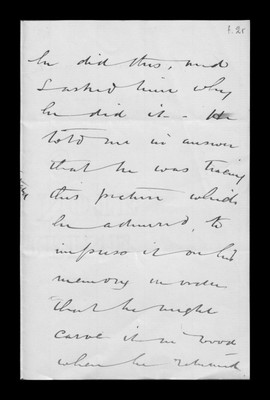 f. 2v
he did this, and
I asked him why
he did it - He
told me in answer
that he was tracing
this picture which
he admired, to
impress it on his
memory in order
that he might
carve it in wood
when he returned